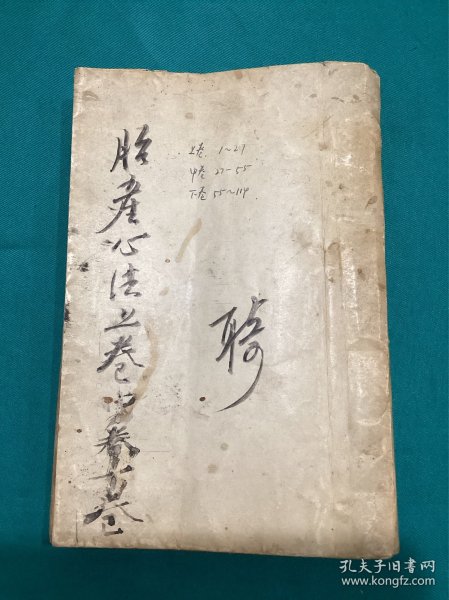 胎產心法上卷中卷下卷
上卷 1~27
中卷 27-55
下卷 55~119
孔夫子旧书网
www.kongfz.com